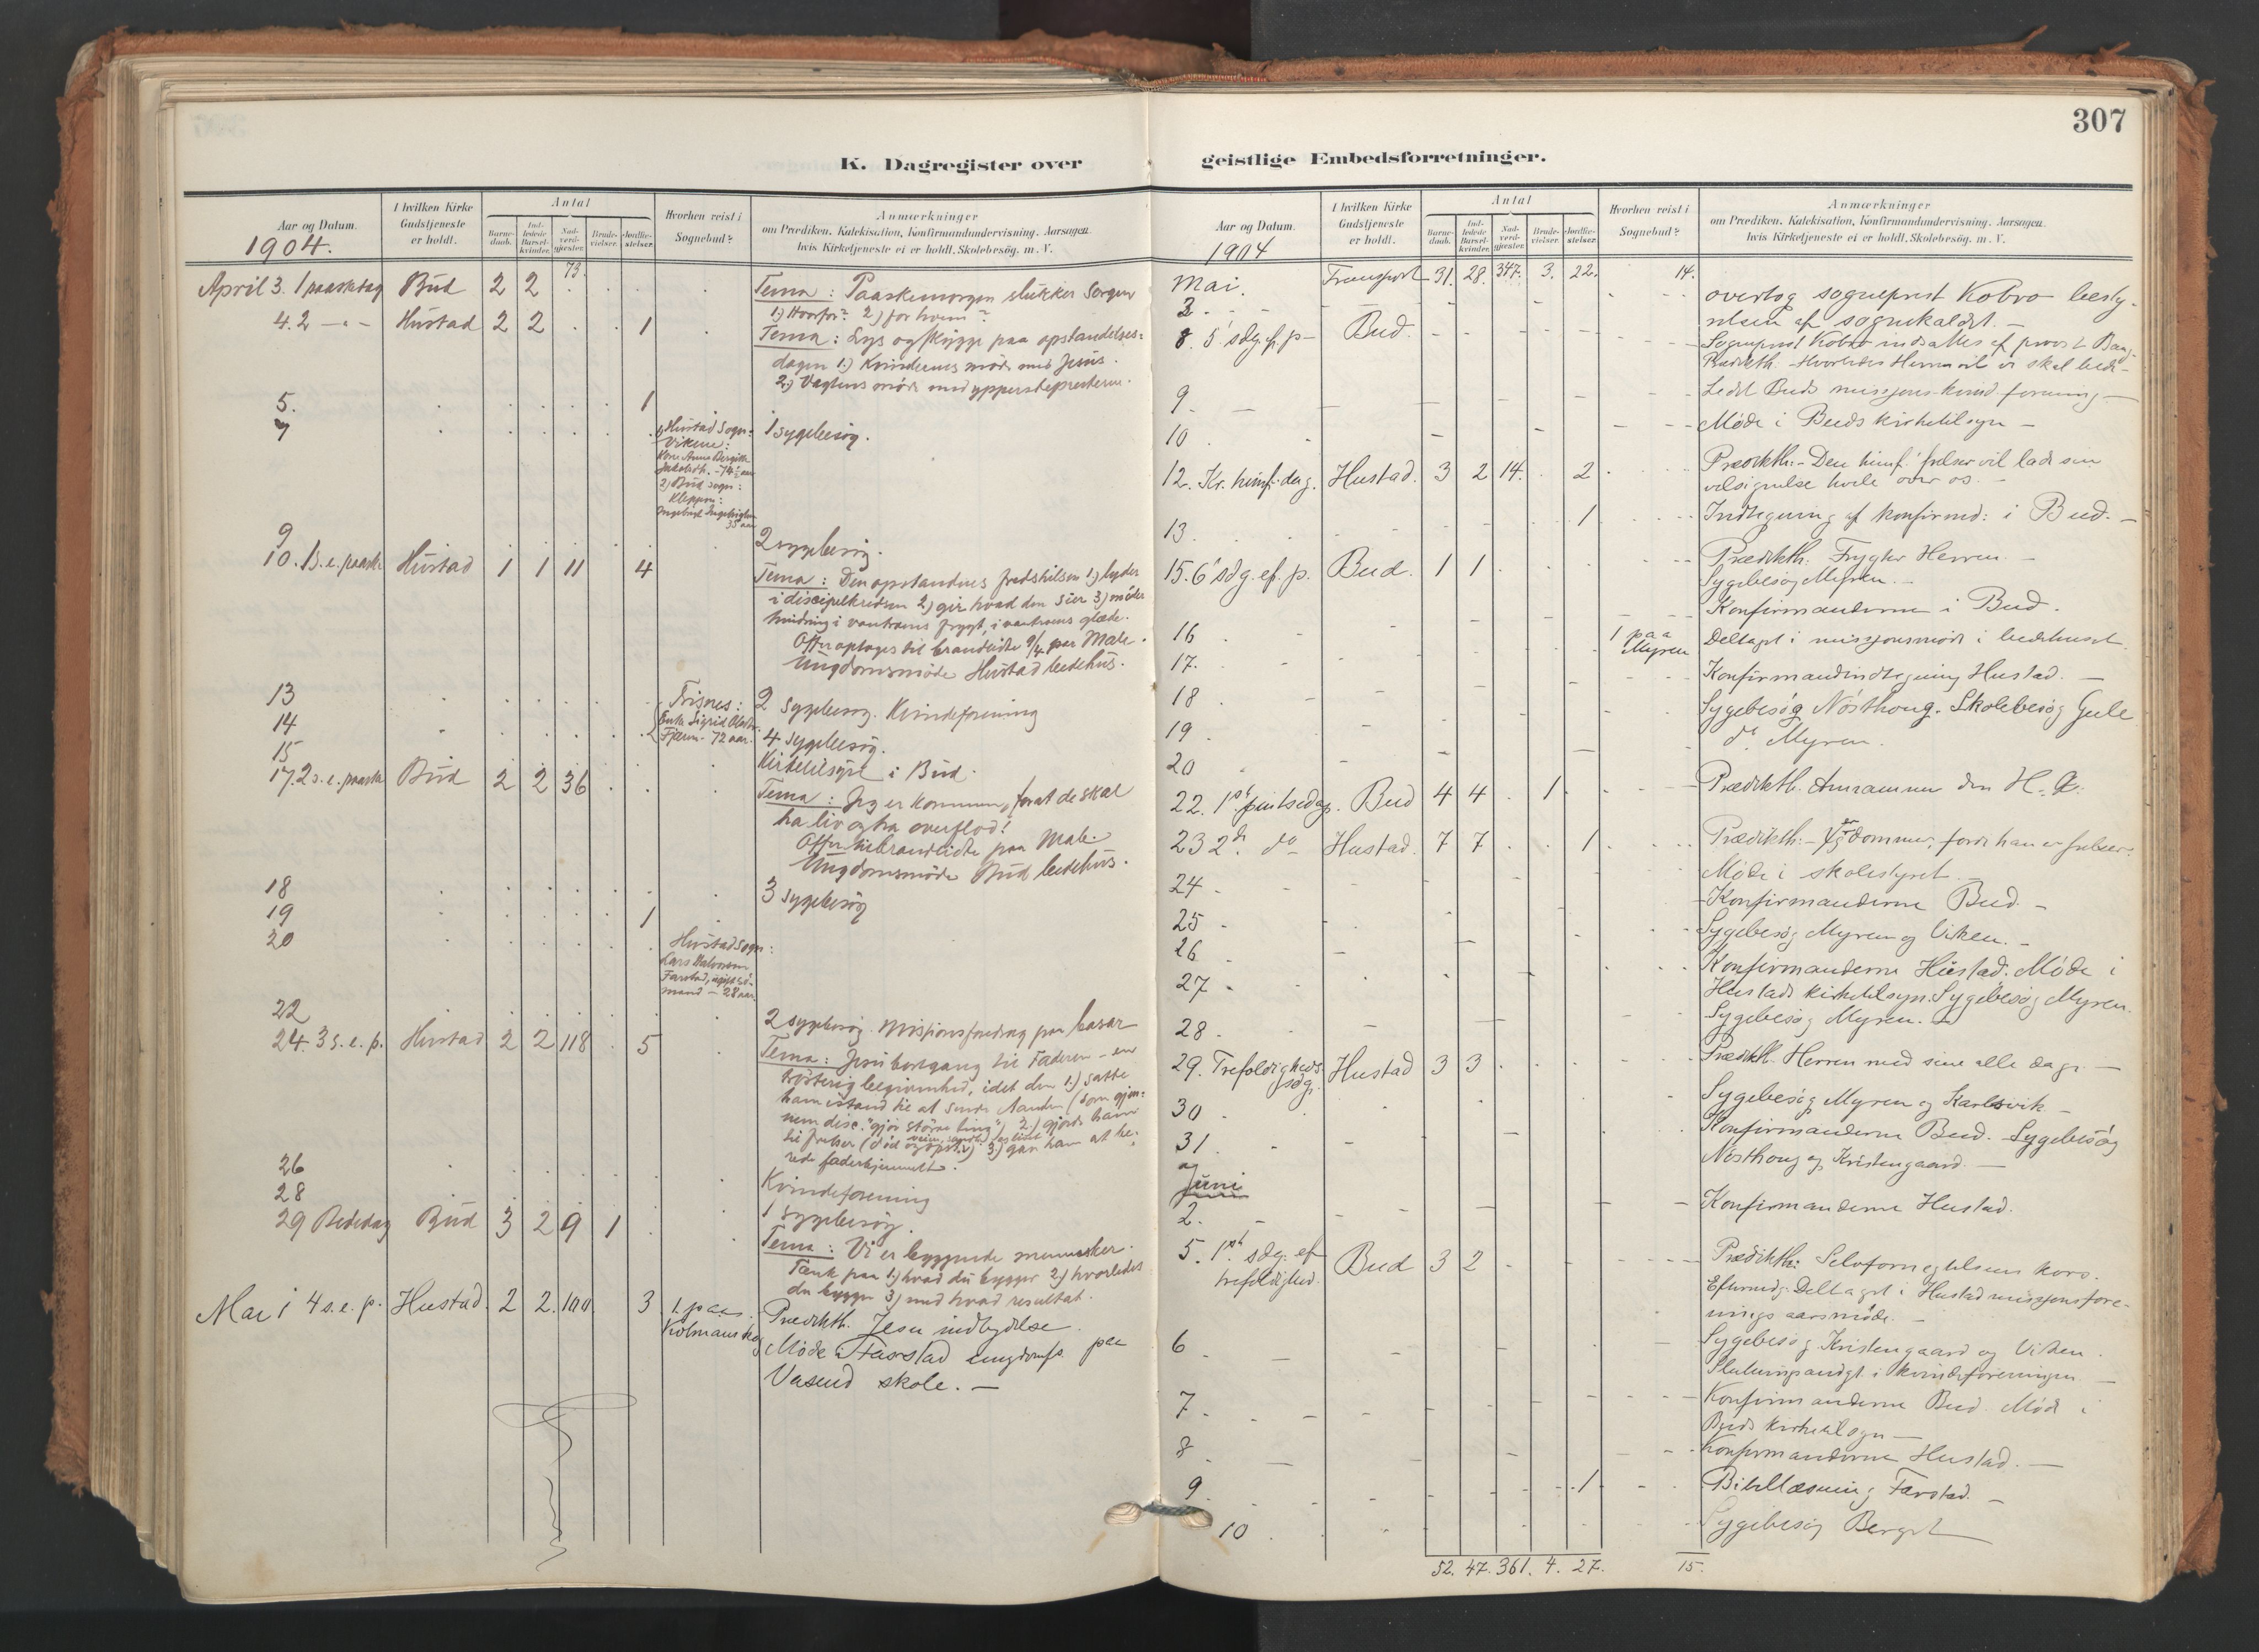 307
K. Dagregister over geistlige Embedsforretninger.
Aar og Datum.
1904.
I hvilken Kirke Gudstjeneste er holdt.
Antal
Barne-daab.
Ind-ledede Barsel-kvinder.
Nad-verd-gjester.
Brude-vielser.
Jordfæ-stelser.
Hvorhen reist i Sognebud?
Anmærkninger
om Prædiken, Katekisation, Konfirmandundervisning, Aarsagen
hvis Kirketjeneste ei er holdt, Skolebesøg, m. V.
April 3. 1 paaskedag Bud 2 2 73. Tema: Paaskemorgen slukker Sorgen
1) Hvorfor? 2) for hvem?
4. 2 - " - Hustad 2 2 1 Tema: Lys og skygge paa opstandelses-
dagen 1.) Kvindernes møde med Jesus.
2.) Vagtens møde med yppersteprestene.
5. 1
7 1) Hustad sogn: 1 sygebesøg.
Vikene:
Kone Anne Bergitte
Jakobsdt. - 74 1/2 aar
2) Bud sogn:
Kleppen:
35 aar
9 2 sygebesøg.
10. 1 s. e. paaske Hustad 1 1 11 4 Tema: Den opstandnes fredshilsen 1.) lyder
i discipelkredsen 2) gir hvad den sier 3) møder
hindring i vantroens frygt, i vantroens glæde.
Offer optages til brandlidte 9/4 paa Male.
Ungdomsmøde Hustad bedehus.
13 Trisnes: 2 sygebesøg. Kvindeforening
14 Enke Sigrid Olsdtr. 4 sygebesøg.
Fjærn - 72 aar.
15 Kirketilsyn i Bud.
17. 2 s. e. paaske Bud 2 2 36 Tema: Jeg er kommen, forat de skal
ha liv og ha overflod!
Offer til brandlidte paa Male.
Ungdomsmøde Bud bedehus.
18 3 sygebesøg
19 1
20 Hustad sogn:
Lars Halvorsen
Farstad, ugift sø-
mand - 28 aar.
22 2 sygebesøg. Misjonsforedrag paa basar
24. 3 s. e. p. Hustad 2 2 118 5 Tema: Jesu bortgang til Faderen - en
trøsterig begivenhed, idet den 1.) satte
ham istand til at sende Aanden (som gjen-
nem disc. "gjør større ting") 2.) gjorde ham
til frelser (død og opst.) 3.) gav ham at be-
rede faderhjemmet.
26 Kvindeforening
28 1 sygebesøg.
29 Bededag Bud 3 2 9 1 Tema: Vi er byggende mennesker.
Tænk paa 1.) hvad du bygger 2.) hvorledes
du bygger 3.) med hvad resultat.
Mai 1 4 s. e. p. Hustad. 2 2. 100 3 1. paa Prædikth. Jesu indbydelse.
Kolmanskog Møde i Farstad ungdomsf. paa
Vasend skole. -
Aar og Datum.
1904
I hvilken Kirke Gudstjeneste er holdt.
Antal
Barne-daab.
Ind-ledede Barsel-kvinder.
Nad-verd-gjester.
Brude-vielser.
Jordfæ-stelser.
Hvorhen reist i Sognebud?
Anmærkninger
om Prædiken, Katekisation, Konfirmandundervisning, Aarsagen
hvis Kirketjeneste ei er holdt, Skolebesøg, m. V.
Mai. Transport 31. 28. 347. 3. 22. 14.
2. overtog sogneprest Kobro besty-
relsen af sognekaldet. -
8. 5' sdg. ef. p. - Bud. Sogneprest Kobro indsattes af provst Bang.
Prædikth. Hvorledes Herren vil vi skal bede -
9 Ledet Buds missjons-kvindforening -
10 Møde i Buds kirketilsyn -
12. Kr. himf. dag. Hustad. 3 2 14. 2 Prædikth: - Den himf. frelser vil lade sin
velsignelse hvile over os. -
13 1 Indtegning af konfirmd: i Bud. -
15. 6' sdg. ef. p. Bud. 1 1 Prædikth. Frygter Herren -
Sygebesøg Myren. -
16 Konfirmanderne i Bud.
1 paa Myren Deltaget i missjonsmøde i bedehuset.
17. Konfirmandindtegning Hustad. -
18 Sygebesøg Nøsthoug. Skolebesøg Gule
19 do Myren.
20
22. 1ste pintsedag. Bud 4 4 1 Prædikth. Annammer den H. A.
23 2den do Hustad. 7 7 1 Prædikth: - er dommer, fordi han er frelser.
24 Møde i skolestyret. -
25 Konfirmanderne Bud. -
26 Sygebesøg Myren og Viken. -
27 Konfirmanderne Hustad. Møde i
Hustads kirketilsyn. Sygebesøg Myren.
28 Sygebesøg Myren. -
29. Trefoldigheds sdg. Hustad 3 3 Prædikth. Herren med sine alle dage. -
30 Sygebesøg Myren og Karlsvik -
31. Konfirmanderne Bud. Sygebesøg
Nøsthoug og Kristengaard. -
og
Juni
2. Konfirmanderne Hustad.
5. 1ste sdg. ef. trefoldighed. Bud 3 2 Prædikth: Selvfornegtelsens kors.
Eftermdg. Deltaget i Hustad missjonsfore-
nings aarsmøde. -
6 Sygebesøg Kristengaard og Viken.
i kvindeforeningen -
7 Konfirmanderne Bud. Møde i
Buds kirketilsyn -
8 Konfirmanderne Hustad. -
9 1 Bibellæsning Farstad. -
10 Sygebesøg Berget
52. 47. 361. 4. 27. 15.